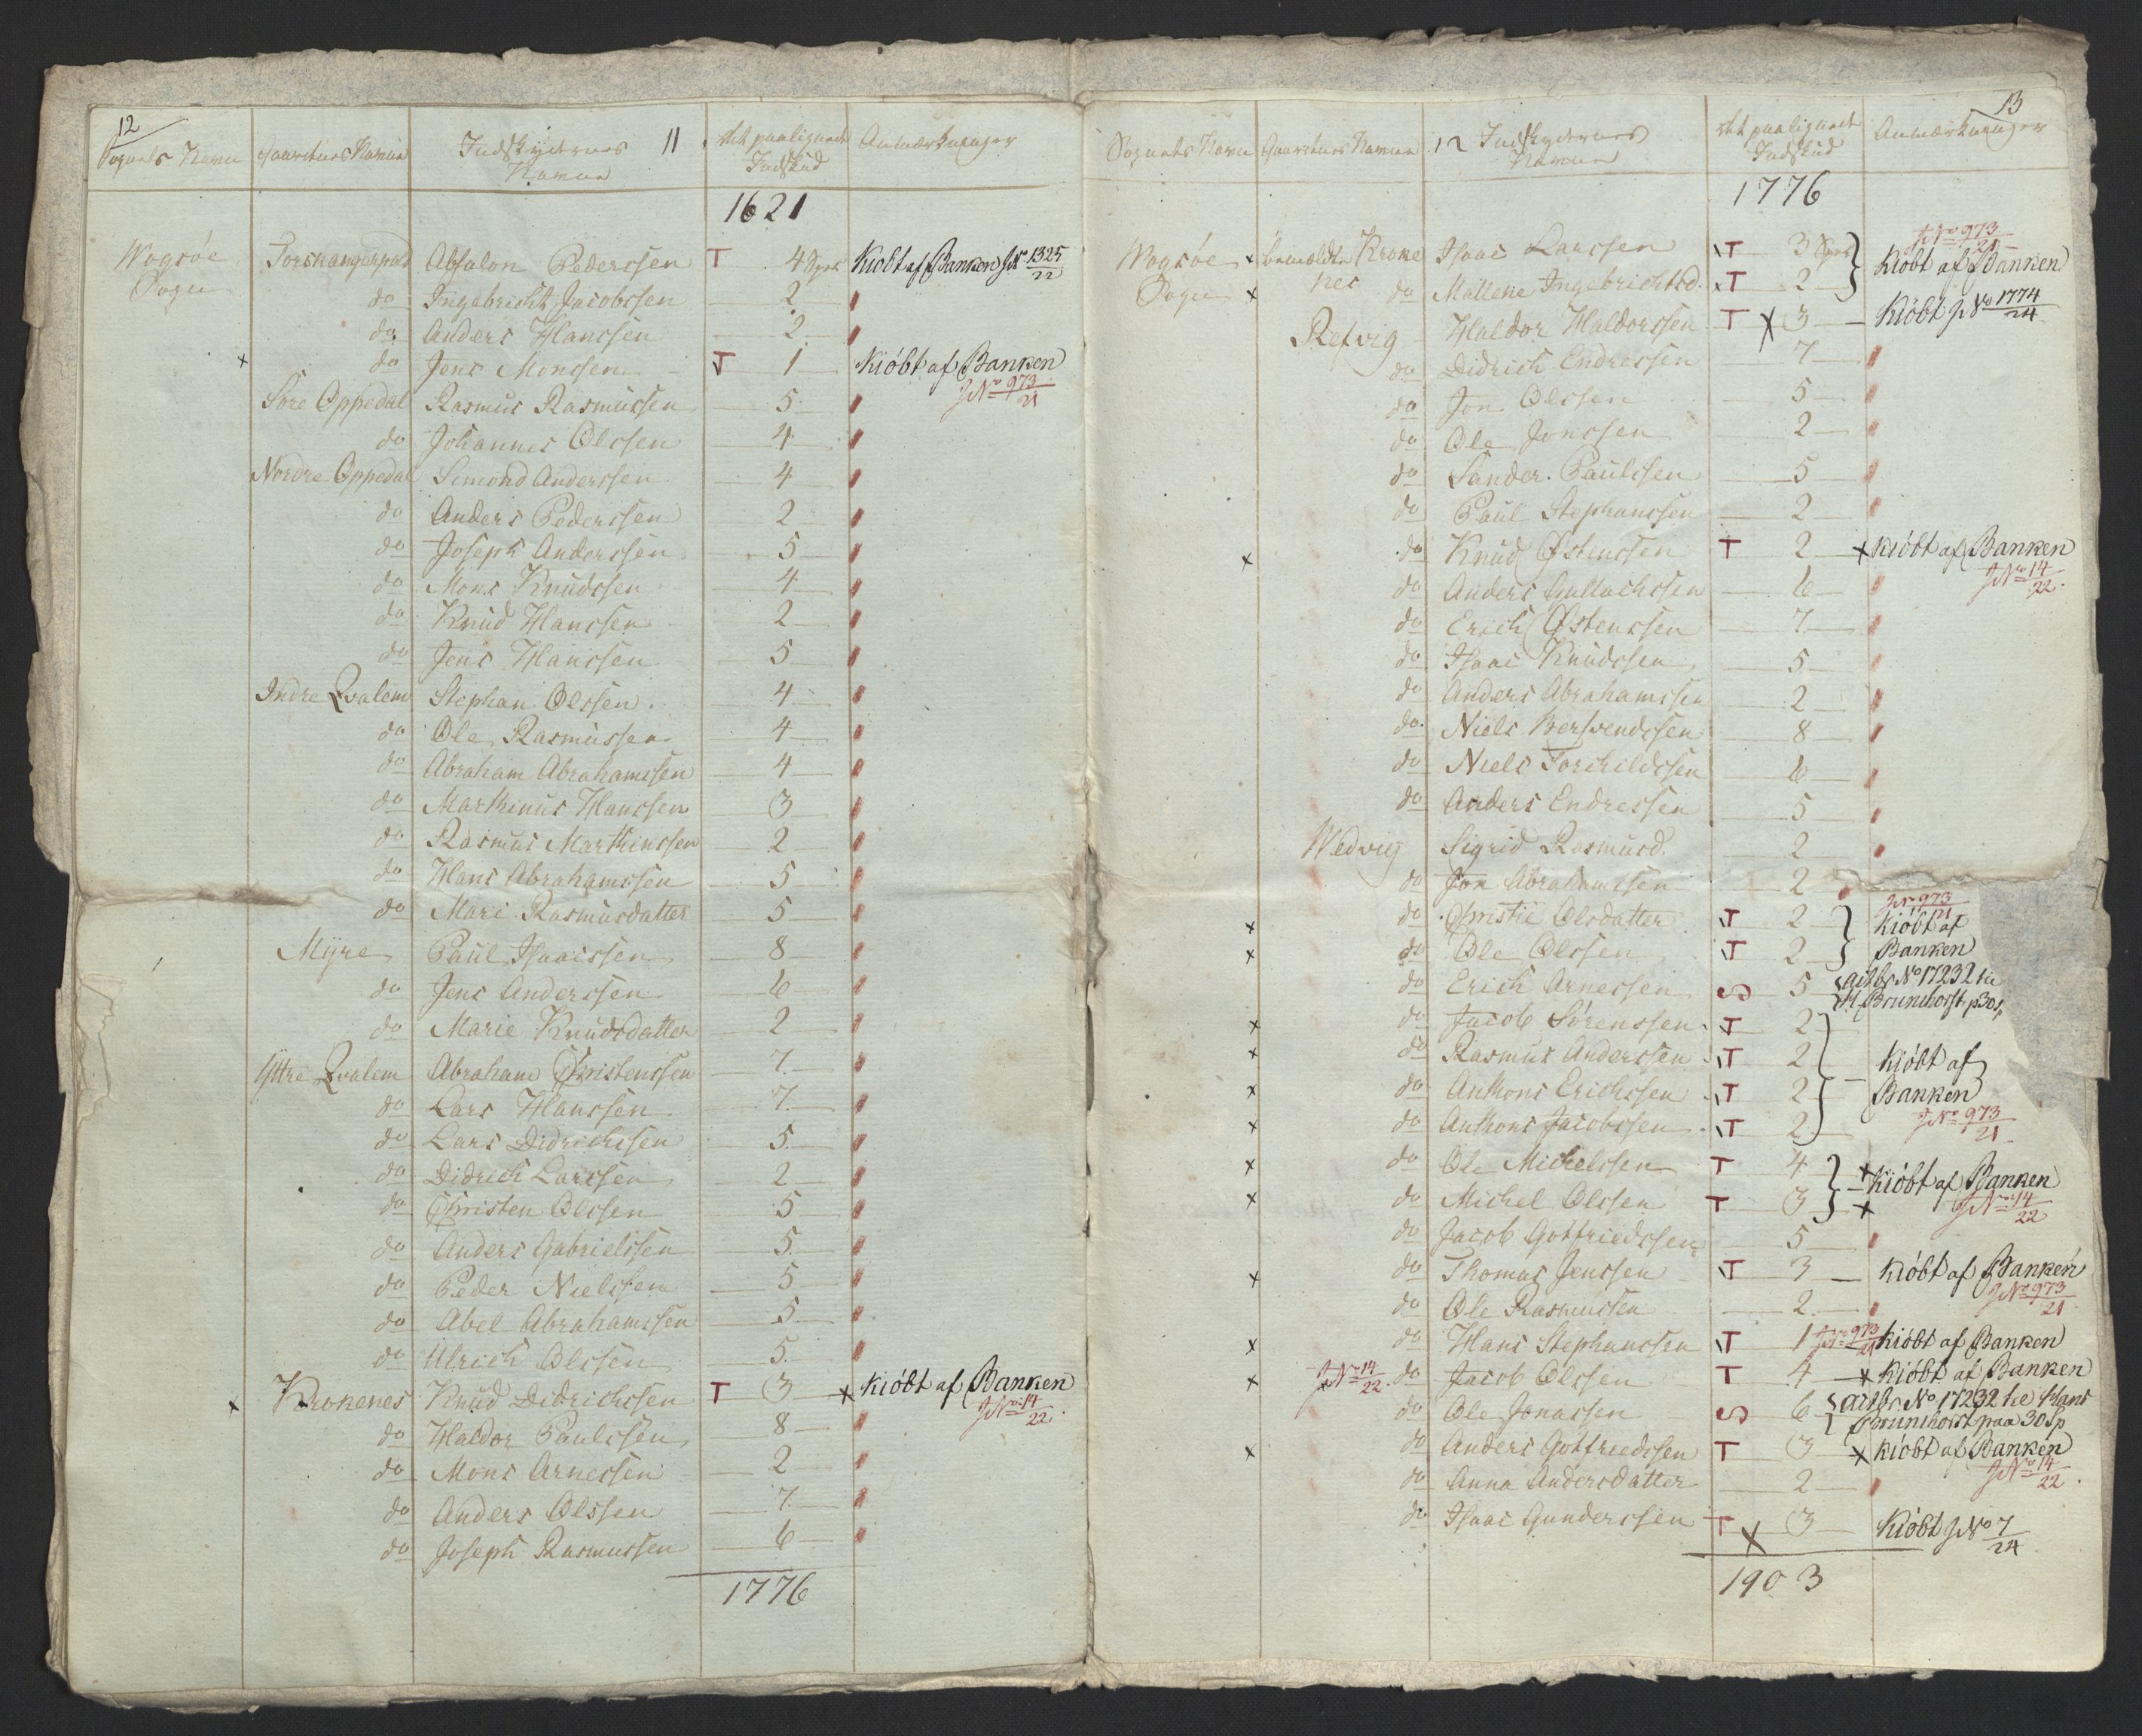 12
Sognets Navn Gaardenes Navne Indskydernes 11 det paalignede Anmærkninger
Navne Indskud
1621
Wogsøe Torskangerpold Absalon Pederssen T 4 Spec Kiøbt af Banken J№ 1325/22
Sogn do Ingebricht Jacobssen 2
do Anders Hanssen 2
x do Jens Monssen T 1 Kiøbt af Banken
J№ 973/21
Søre Oppedal Rasmus Rasmussen 5
do Johannes Olssen 4
Nordre Oppedal Simond Anderssen 4
do Anders Pederssen 2
do Joseph Anderssen 5
do Mons Knudssen 4
do Knud Hanssen 2
do Jens Hanssen 5
Indre Qvalem Stephan Olssen 4
do Ole Rasmussen 4
do Abraham Abrahamssen 4
do Marthinus Hanssen 3
do Rasmus Marthinssen 2
do Hans Abrahamssen 5
do Mari Rasmusdatter 5
Myre Paul Isaacssen 8
do Jens Anderssen 6
do Marie Knudsdatter 2
Yttre Qvalem Abraham Christenssen 7
do Lars Hanssen 7
do Lars Didrichssen 5
do Didrich Larssen 2
do Christen Olssen 5
do Anders Gabrielssen 5
do Peder Nielssen 5
do Abel Abrahamssen 5
do Ulrich Olssen 5
x Krokenes Knud Didrichssen T 3 x Kiøbt af Banken
J№ 14/22
do Haldor Paulssen 8
do Mons Arnessen 2
do Anders Olssen 7
do Joseph Rasmussen 6
1776
13
Sognets Navn Gaardenes Navne 12 Indskydernes det paalignede Anmærkninger
Navne Indskud
1776
J№ 973/21
Wogsøe x bemeldte Kroke Isaac Larssen T 3 Spec } Kiøbt af Banken
Sogn x nes do Mallene Ingebrichtsd. T 2
Refvig Haldor Haldorssen T x 3 Kiøbt J№ 1774/24
do Didrich Endressen 7
do Jon Olssen 5
do Ole Jonssen 2
do Sander Paulssen 5
do Paul Stephanssen 2
x do Knud Østenssen T 2 x Kiøbt af Banken
J№ 14/22
do Anders Gullachssen 6
do Erich Østenssen 7
do Isaac Knudssen 5
do Anders Abrahamssen 2
do Niels Bersvendssen 8
do Niels Torchildssen 6
do Anders Endressen 5
Wedvig Sigrid Rasmusd. 2
do Jon Abrahamssen 2
J№ 973/21
x do Christie Olsdatter T 2 } Kiøbt af
x do Ole Olssen T 2 Banken
do Erich Arnessen S 5 { № 17232
H Brunchorst p 30
x do Jacob Sørenssen T 2
x do Rasmus Anderssen T 2 Kiøbt af
x do Anthons Erichssen T 2 Banken
x do Anthons Jacobssen T 2 J№ 973/21
x do Ole Michelssen T 4 } x Kiøbt af Banken
x do Michel Olssen T 3 x J№ 14/22
do Jacob Gottfriedssen 5
x do Thomas Jenssen T 3 Kiøbt af Banken
J№ 973/21
do Ole Rasmussen 2
x do Hans Stephanssen T 1 J№ 973/21 Kiøbt af Banken
x J№ 14/22 do Jacob Olssen T 4 x Kiøbt af Banken
do Ole Jonassen S 6 { № 17232 Hans
Brunchorst paa 30 Sp
x do Anders Gottfriedssen T 3 x Kiøbt af Banken
J№ 14/22
do Anna Andersdatter 2
do Isaac Gunderssen T x 3 Kiøbt J№ 7/24
1903